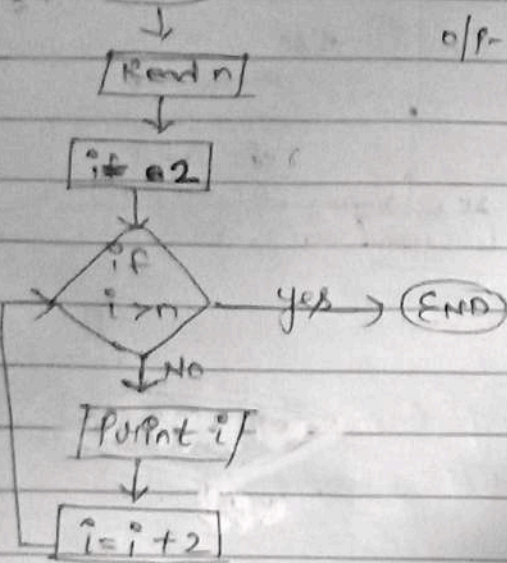 o/p-
Read n
i= 2
if
i>n
yes
END
NO
Print i
i=i+2